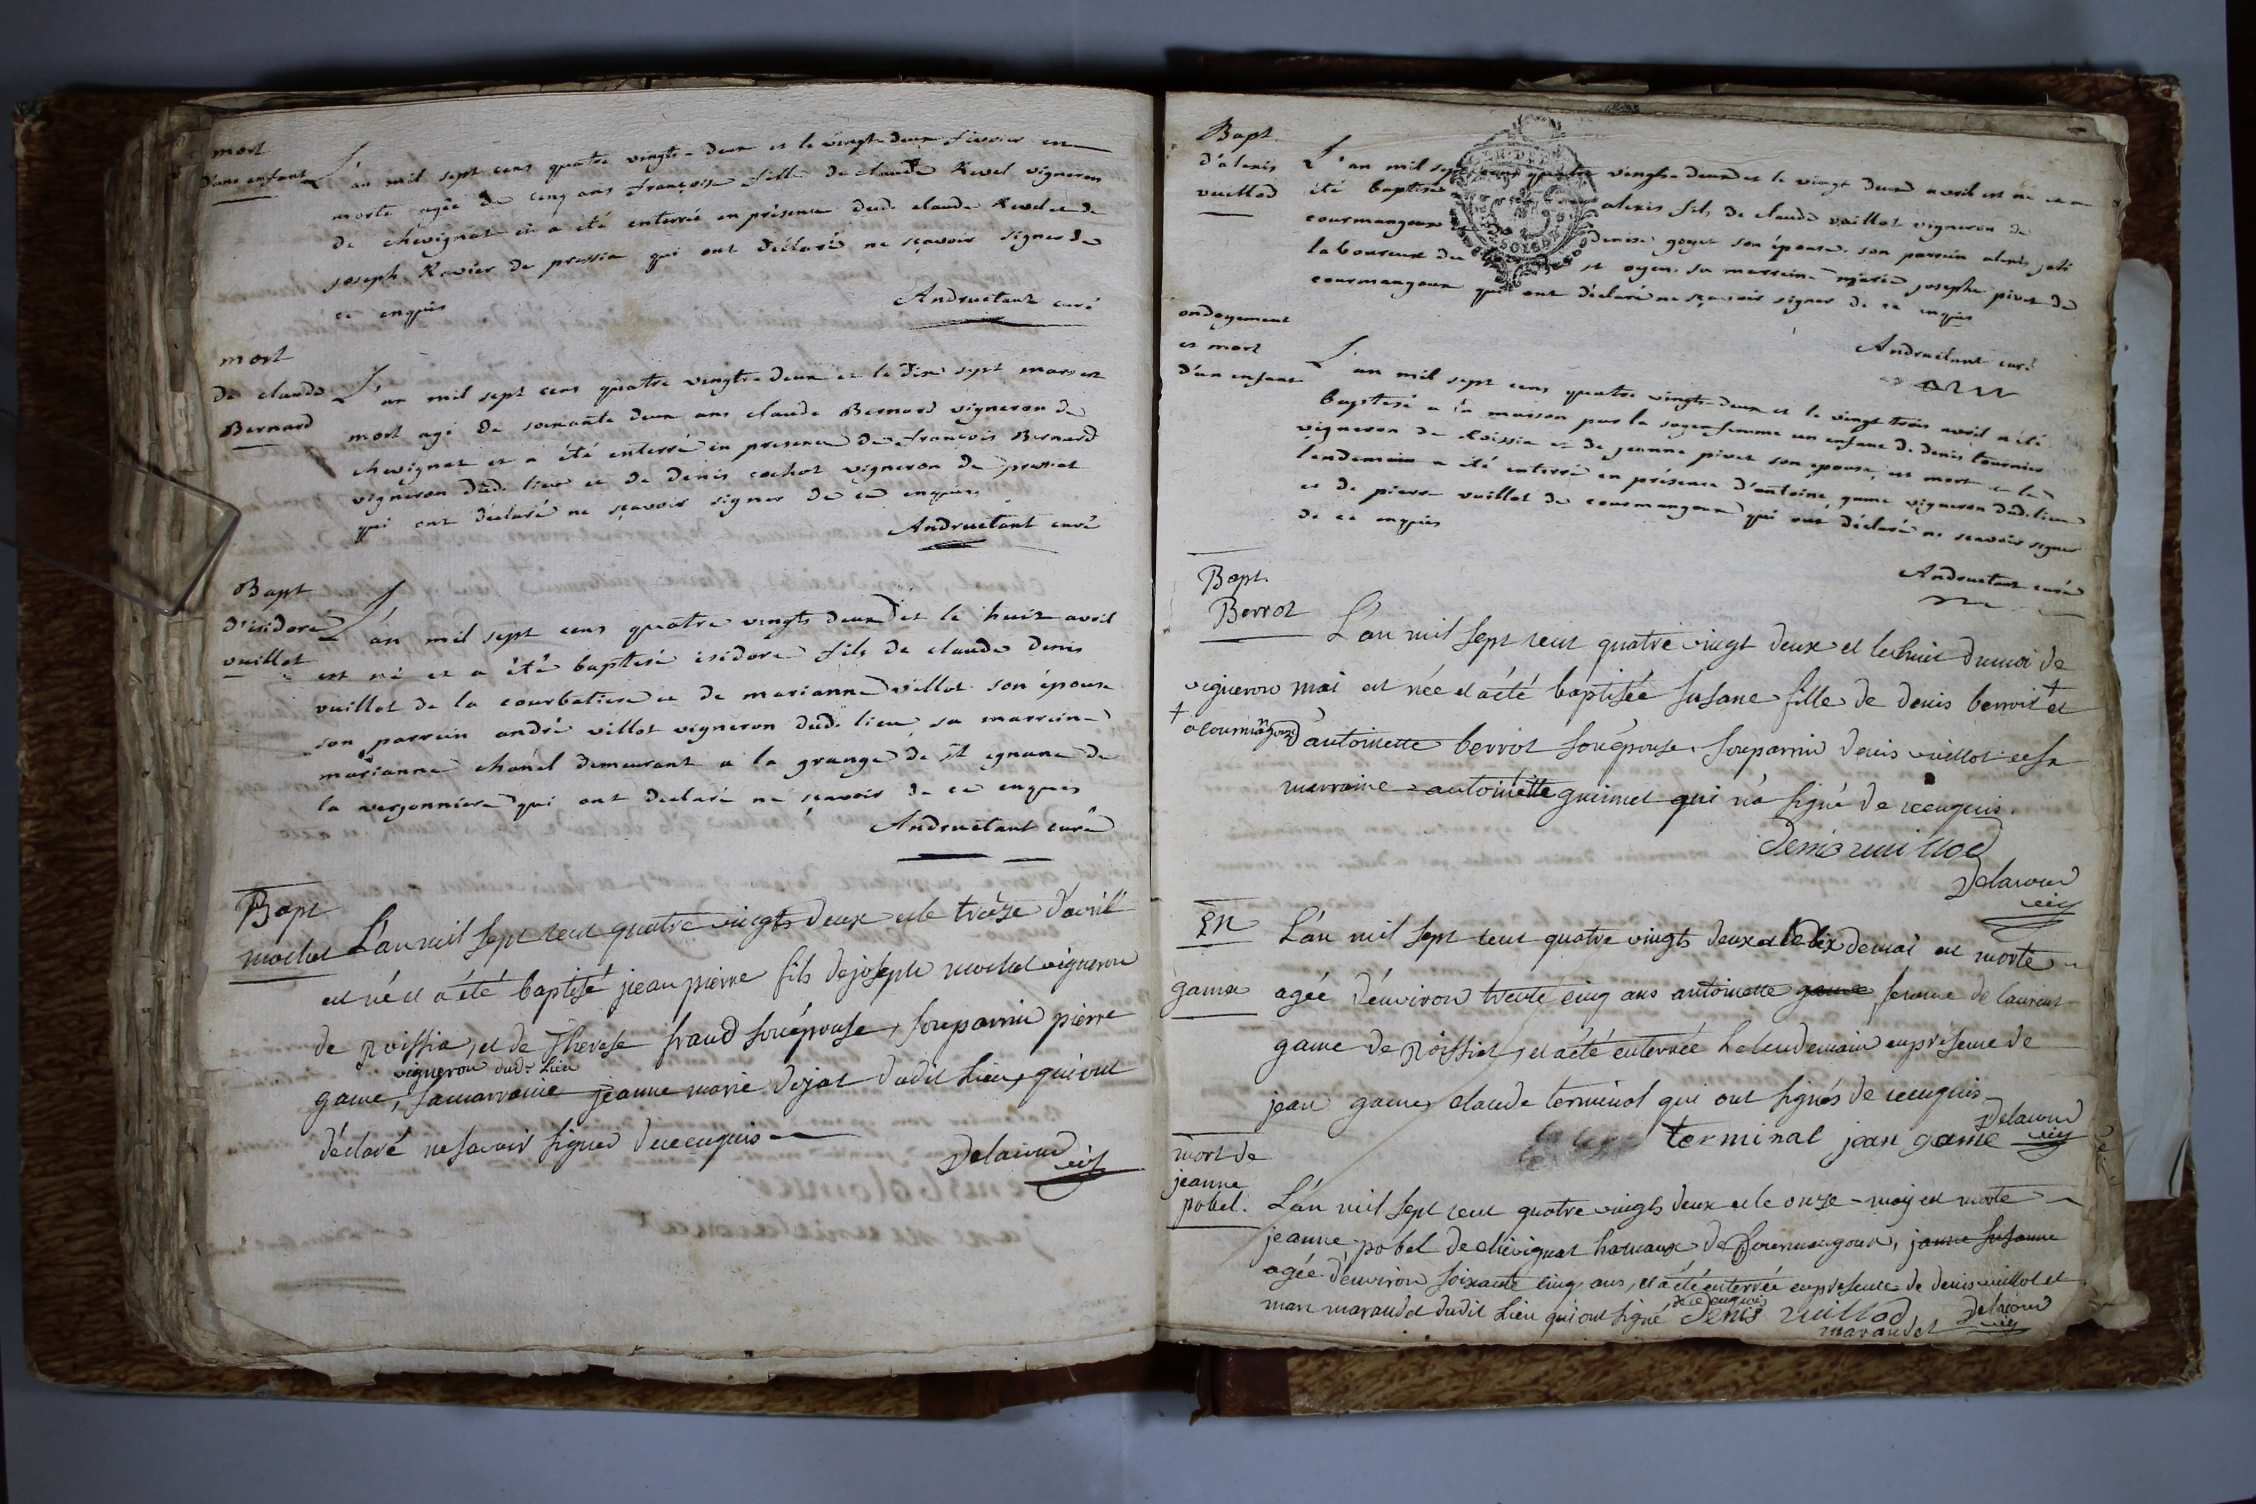 mort
d'une enfant
L'an mil sept cens quatre vingts-deux et le vingt-deux février est
morte agée de cinq ans françoise fille de claude Revel vigneron
de chevignat et a été enterrée en présence dud. claude Revel et de
joseph Ravier de pressia qui ont déclaré ne sçavoir signer de
ce enquis
Andruetant curé
mort
de claude
Bernard
L'an mil sept cens quatre vingts-deux et le dix sept mars est
mort agé de soixante deux ans claude Bernard vigneron de
chevignat et a été enterré en presence de françois Bernard
vigneron dud. lieu et de denis cochet vigneron de
qui ont déclaré ne sçavoir signer de ce enquis
Andruetant curé
Bapt
d'isidore
vuillot
L'an mil sept cens quatre vingts deux et le huit avril
est né et a été baptisé isidore fils de claude denis
vuillot de la courbatiere et de marianne villot son épouse
son parrein andré villot vigneron dud. lieu sa marreine
marianne chanel demeurant a la grange de st de
la verjonniere qui ont declaré ne sçavoir de ce enquis
Andruetant curé
Bapt
mochet
L'an mil sept cent quatre vingts deux et le treize d'avril
est né et a été baptisé jean pierre fils de joseph mochet vigneron
de Roissia, et de Therese fraud son épouse, son parrin pierre
vigneron dudt lieu
game, sa marraine jeanne marie dejat dudit lieu, qui ont
déclaré ne savoir signer de ce enquis
Delacour vic
Bapt
d'alexis
vuillod
L'an mil sept cens quatre vingts-deux et le vingt deux avril est né et a
été baptisé alexis fils de claude vuillot vigneron de
courmangoux et de denise goyet son épouse. son parrein alexis joli
laboureur de st oyen. sa marreine marie josephe pivet de
courmangoux qui ont déclaré ne sçavoir signer de ce enquis
Andruetant curé
ondoyement
et mort
d'un enfant
L'an mil sept cens quatre vingts-deux et le vingt trois avril a été
baptisé a la maison par la sagefemme un enfant de denis tournier
vigneron de Roissia et de jeanne pivet son épouse, est mort et le
lendemain a été enterré en présence d'antoine game vigneron dud. lieu
et de pierre vuillot de courmangoux qui ont déclaré ne sçavoir signer
de ce enquis
Andruetant curé
Bapt.
Berrot
L'an mil sept cent quatre vingt deux et le huit du moi de
vigneron mai est née et a été baptisée susane fille de denis berrot + et
+
a courmangoux
d'antoinette berrot son épouse, son parrin denis vuillot et sa
marraine antoinette guimet qui n'a signé de ce enquis.
denis vuillod
Delacour
vic
En
game
L'an mil sept cent quatre vingts deux et le dix de mai est morte
agée d'environ trente cinq ans antoinette game femme de laurent
game de Roissiat, et a été enterrée le lendemain en présence de
jean game, claude terminal qui ont signés de ce enquis
Delacour
terminal jean game vic
mort de
jeanne
pobel.
L'an mil sept cent quatre vingts deux et le onze may est morte
jeanne pobel de chevignat hameaux de Courmangoux, jeanne susanne
agée d'environ soixante cinq ans, et a été enterrée en présence de denis vuillot et
marc maraudet dudit lieu qui ont signé de ce enquis
denis vuillod Delacour
maraudet vic